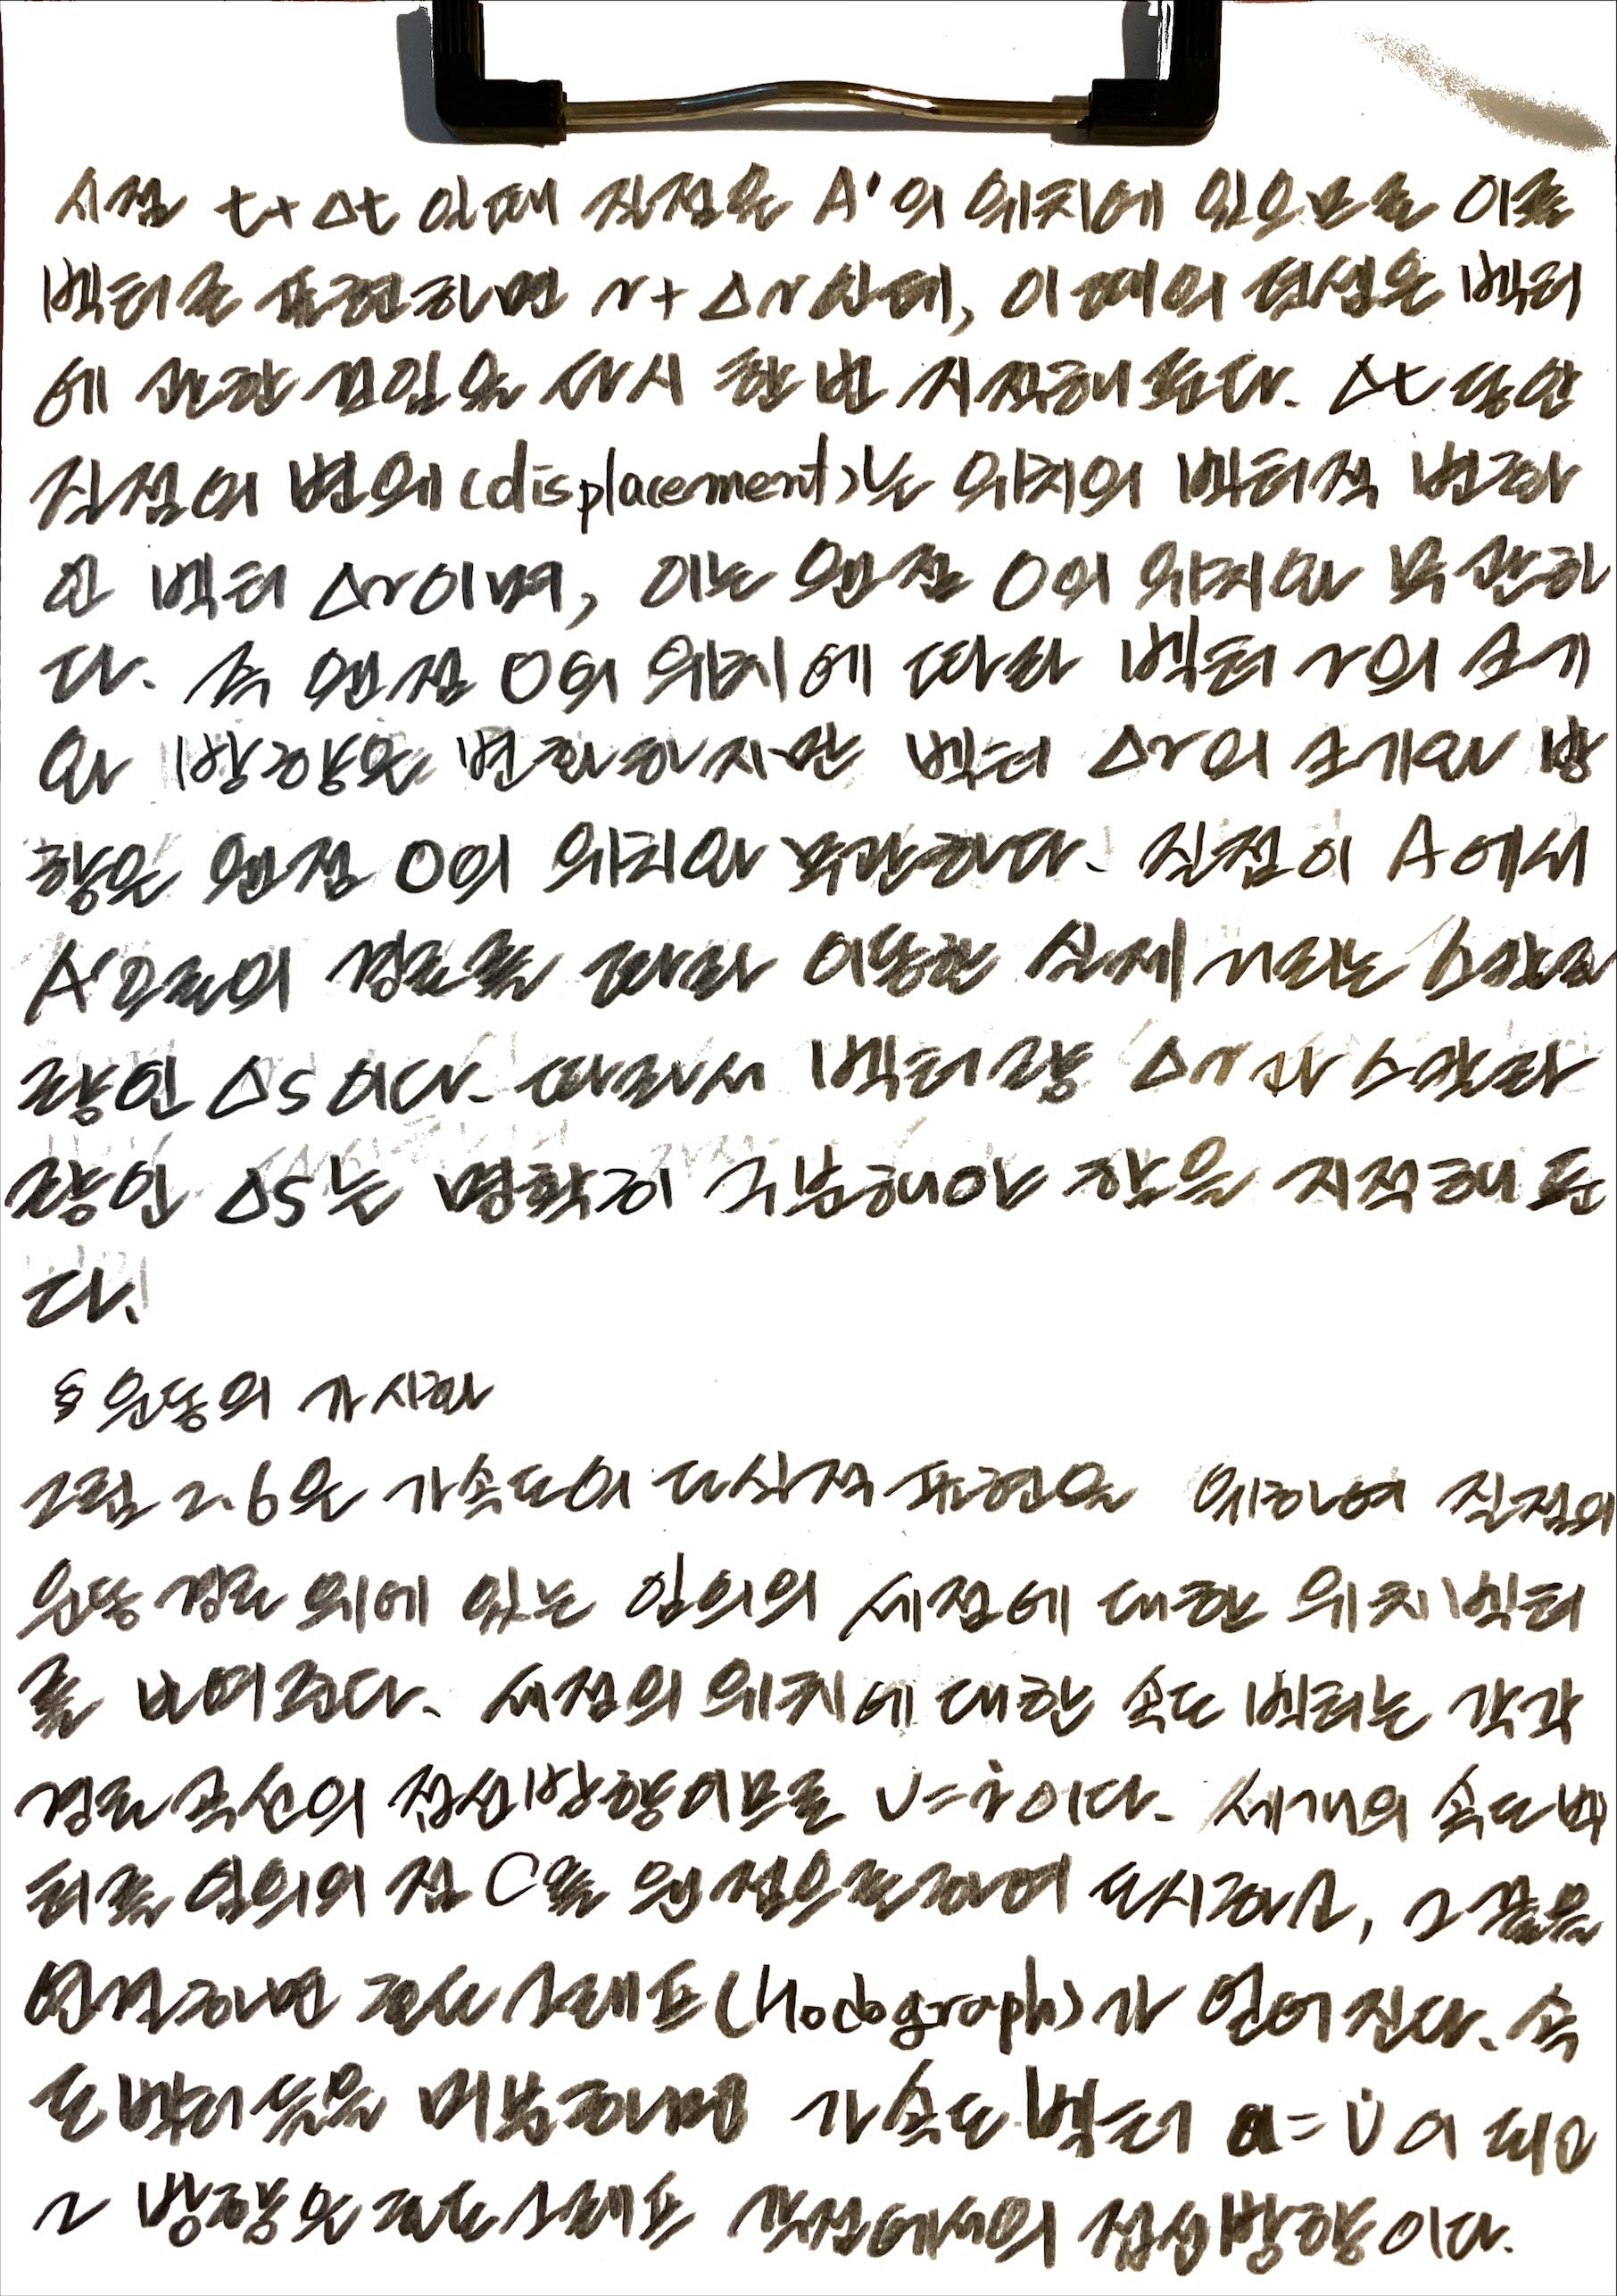 시점 t+Δt일 때 질점은 A'의 위치에 있으므로 이를
벡터로 표현하면 r+Δr인데, 이 때의 덧셈은 벡터
에 관한 것임을 다시 한 번 지적해 둔다. Δt 동안
질점의 변위(displacement)는 위치의 벡터적 변화
인 벡터 Δr이며, 이는 원점 O의 위치와 무관하
다. 즉 원점 O의 위치에 따라 벡터 r의 크기
와 방향은 변화하지만 벡터 Δr의 크기와 방
향은 원점 O의 위치와 무관하다. 질점이 A에서
A'으로의 경로를 따라 이동한 실제 거리는 스칼라
량인 Δs이다. 따라서 벡터량 Δr과 스칼라
량인 Δs는 명확히 구분해야 함을 지적해 둔
다.
§ 운동의 가시화
그림 2.6은 가속도의 도식적 표현을 위하여 질점의
운동경로 위에 있는 임의의 세점에 대한 위치벡터
를 보여준다. 세점의 위치에 대한 속도 벡터는 각각
경로곡선의 접선방향이므로 v=ṙ이다. 세개의 속도벡
터를 임의의 점 C를 원점으로하여 도시하고, 그 끝을
연결하면 호도그래프(Hodograph)가 얻어진다. 속
도벡터들을 미분하면 가속도 벡터 a=v̇이 되고
그 방향은 호도그래프 각점에서의 접선방향이다.